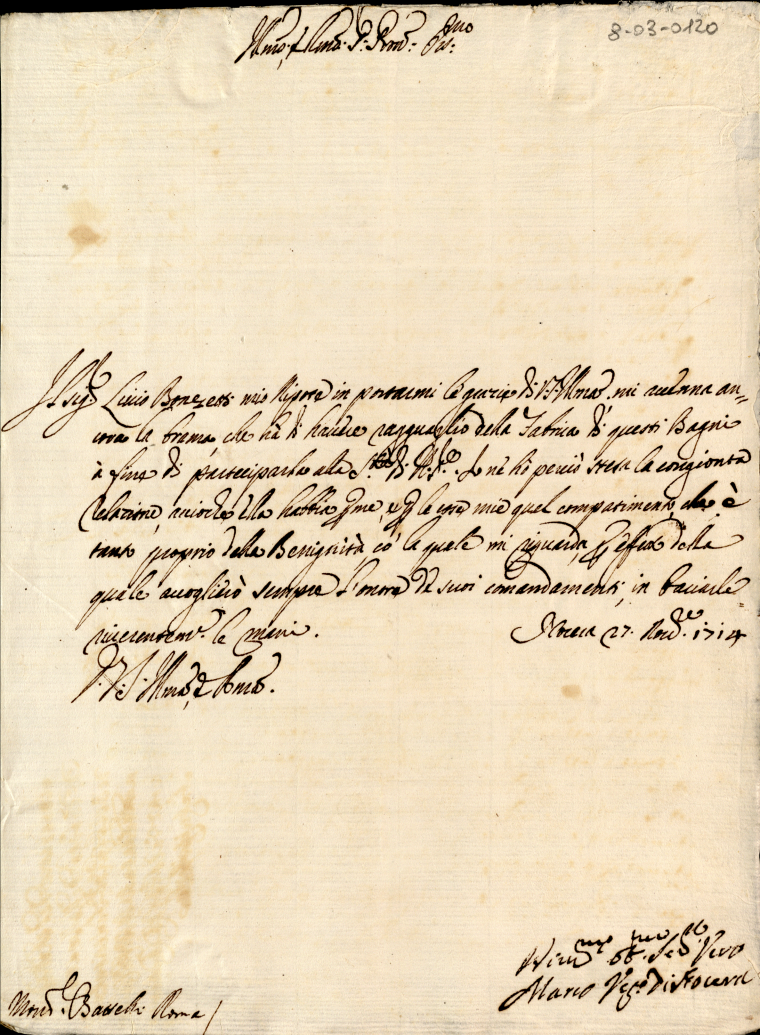 8-03-0120
Illmo, e Rmo. Sig. Pron. Col.mo
Il Sigr. Livio Bonezetti mio Nipote in portarmi le grazie di V.S. Illma. mi accenna an=
cora la brama, che hà di havere ragguaglio della Fabrica di questi Bagni
à fine di parteciparla alla S.tà di N.S.re. Io nè hò perciò stesa la congionta
relazione, acciochè Ella habbia per me e per le cose mie quel compatimento, che è
tanto proprio della Benignità, cò la quale mi riguarda, per effetto della
quale accoglierò sempre l'onore de suoi comandamenti, in baciarle
riverentemte. le mani. Nocera 27. Nov.re 1714
D. V. S. Illma, e Rma.
Devmo. et obbmo Serre. Vero
Marco Vesc.o di Nocera
Monsr. Battelli Roma /